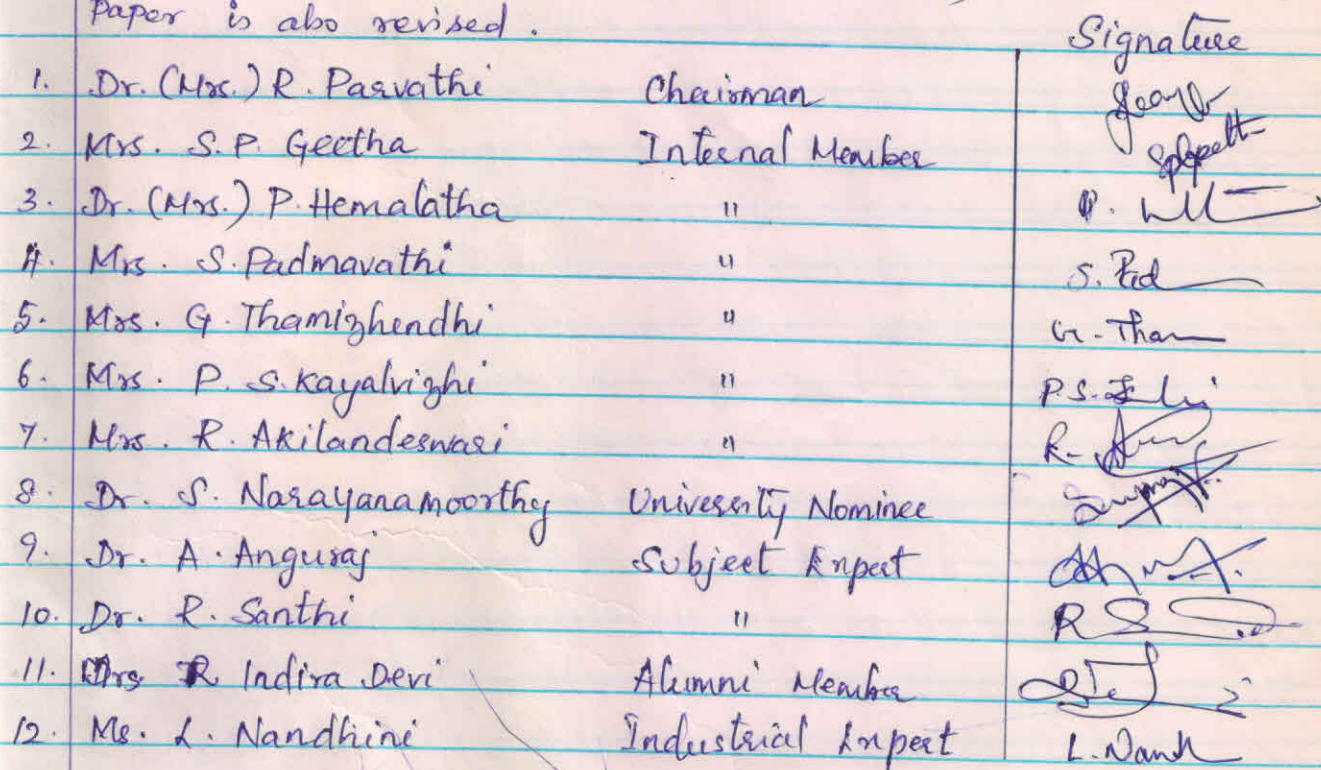 Paper is also revised.
Signature
1. Dr. (Mrs.) R. Parvathi Chairman
2. Mrs. S.P. Geetha Internal Member
3. Dr. (Mrs.) P. Hemalatha "
4. Mrs. S. Padmavathi " S. Pad
5. Mrs. G. Thamizhendhi " G. Tham
6. Mrs. P. S. Kayalvizhi " P.S.
7. Mrs. R. Akilandeswari " R.
8. Dr. S. Narayanamoorthy University Nominee
9. Dr. A. Anguraj Subject Expert
10. Dr. R. Santhi " R S
11. Mrs R Indira Devi Alumni Member
12. Ms. L. Nandhini Industrial Expert L. Nandh